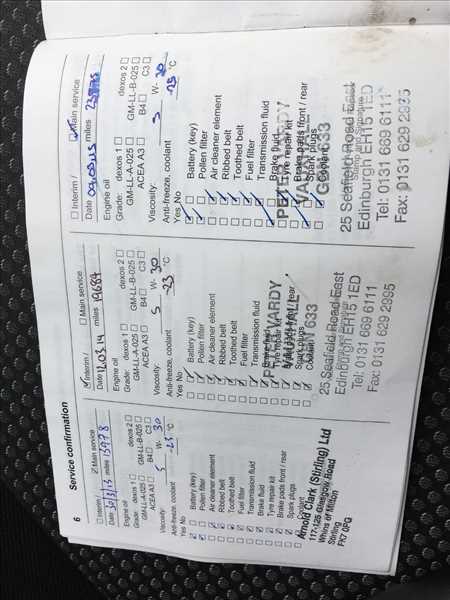 6
Service confirmation
Interim / Main service
Date 30/3/13 miles 15978
Engine oil
Grade: dexos 1 dexos 2
GM-LL-A-025 GM-LL-B-025
ACEA A3 B4 C3
Viscosity: 5 W- 30
Anti-freeze, coolant -25 °C
Yes No
Battery (key)
Pollen filter
Air cleaner element
Ribbed belt
Toothed belt
Fuel filter
Transmission fluid
Brake fluid
Tyre repair kit
Brake pads front / rear
Spark plugs
Coolant
Arnold Clark (Stirling) Ltd
117-125 Glasgow Road
Whins of Milton
Stirling
FK7 0PG
Interim / Main service
Date 12.03.14 miles 19684
Engine oil
Grade: dexos 1 dexos 2
GM-LL-A-025 GM-LL-B-025
ACEA A3 B4 C3
Viscosity: 5 W- 30
Anti-freeze, coolant -25 °C
Yes No
Battery (key)
Pollen filter
Air cleaner element
Ribbed belt
Toothed belt
Fuel filter
Transmission fluid
Brake fluid
Tyre repair kit
Brake pads front / rear
Spark plugs
Coolant
PETER VARDY
VAUXHALL
1633
25 Seafield Road East
Edinburgh EH15 1ED
Tel: 0131 669 6111
Fax: 0131 629 2995
Interim / Main service
Date 09.03.15 miles 23875
Engine oil
Grade: dexos 1 dexos 2
GM-LL-A-025 GM-LL-B-025
ACEA A3 B4 C3
Viscosity: 5 W- 30
Anti-freeze, coolant -25 °C
Yes No
Battery (key)
Pollen filter
Air cleaner element
Ribbed belt
Toothed belt
Fuel filter
Transmission fluid
Brake fluid
Tyre repair kit
Brake pads front / rear
Spark plugs
Coolant
PETER VARDY
VAUXHALL
1633
25 Seafield Road East
Stamp and Signature
Edinburgh EH15 1ED
Tel: 0131 669 6111
Fax: 0131 629 2995